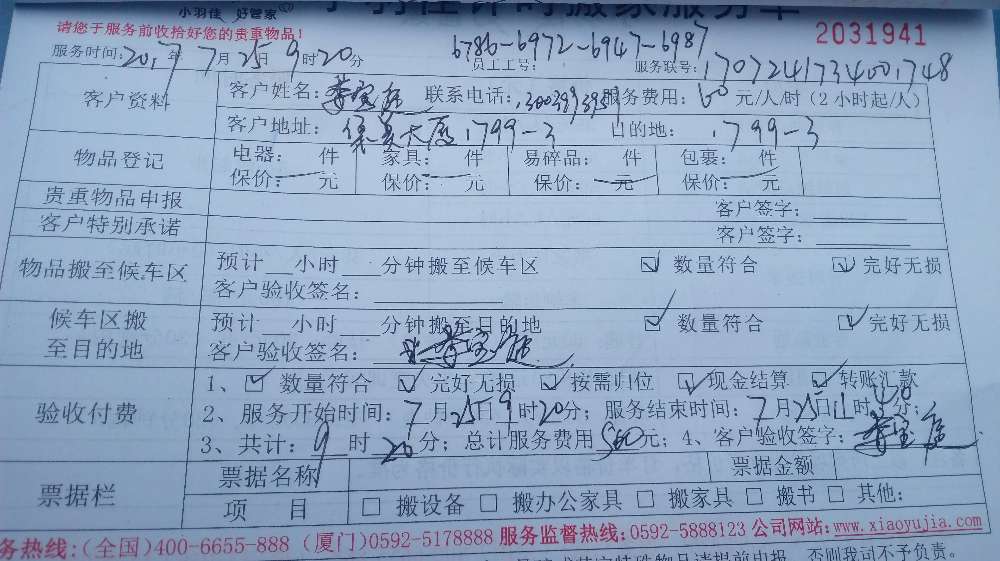 小羽佳 好管家
小羽佳计时搬家服务单
请您于服务前收拾好您的贵重物品!
2031941
服务时间:2017年7月25日9时20分 员工工号:6786-6972-6947-6987 服务联号:1707241734001748
客户资料
客户姓名: 联系电话: 服务费用:60元/人/时(2小时起/人)
客户地址:集美大厦1799-3 目的地:1799-3
物品登记
电器: 件 家具: 件 易碎品: 件 包裹: 件
保价: 元 保价: 元 保价: 元 保价: 元
贵重物品申报 客户签字:
客户特别承诺 客户签字:
物品搬至候车区
预计__小时___分钟搬至候车区 ☑ 数量符合 ☑ 完好无损
客户验收签名:
候车区搬至目的地
预计__小时___分钟搬至目的地 ☑ 数量符合 ☑ 完好无损
客户验收签名:
验收付费
1、☑ 数量符合 ☑ 完好无损 ☑ 按需归位 ☑ 现金结算 ☑ 转账汇款
2、服务开始时间:7月25日9时20分;服务结束时间:7月25日11时40分;
3、共计:9时20分;总计服务费用560元;4、客户验收签字:
票据栏
票据名称 票据金额
项 目 □ 搬设备 □ 搬办公家具 □ 搬家具 □ 搬书 □ 其他:
务热线:(全国)400-6655-888 (厦门)0592-5178888 服务监督热线:0592-5888123 公司网站:www.xiaoyujia.com
特殊物品请提前申报,否则我司不予负责。